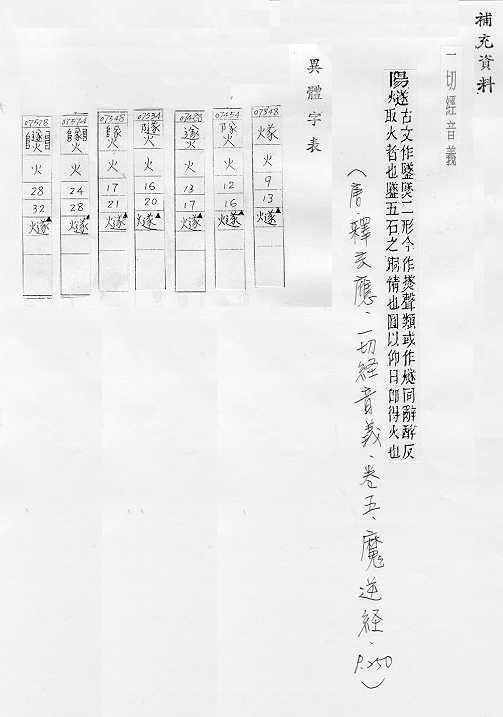 補充資料
一切經音義
陽燧古文作鐆㷂二形今作㷭聲類或作㸂同辭醉反
火取火者也鐆五石之銅精也圓以仰日即得火也
(唐.釋玄應.一切経音義.卷五.魔逆経.P.250)
異體字表
07848
火
9
13
燧
07454
火
12
16
燧
07480
火
13
17
燧
07534
火
16
20
燧
07548
火
17
21
燧
07574
火
24
28
燧
07578
火
28
32
燧